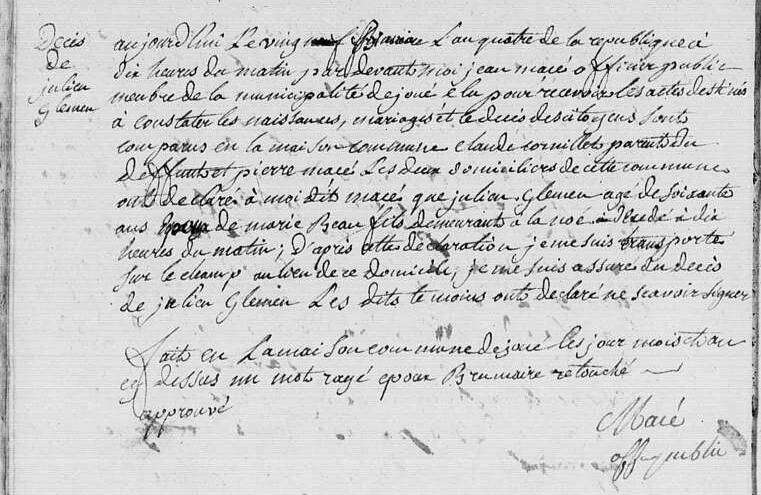 Decès
de
julien
Glemen
aujourdhui Le vingt Brumaire L an quatre de la republique à
dix heures du matin par devant moi jean macé officier public
menbre de la municipalité de joué elu pour recevoir les actes destinés
à constater les naissances, mariages et le decès des citoyens sont
comparus en la maison commune claude cornillet parent du
deffunt et pierre macé Les deux domiciliers de cette commune
ont declaré à moi dit macé que julien Glemen agé de soixante
ans de marie Beaufils demeurant a la noe decedé à dix
heures du matin; D'après cette declaration je me suis transporté
sur le champ au lieu de ce domicile, je me suis assuré du decès
de julien Glemen Les dits temoins ont declaré ne scavoir signer
fait en La maison commune de joué les jour mois et an
cy dessus un mot rayé epoux Brumaire retouché
approuvé
Macé
off public